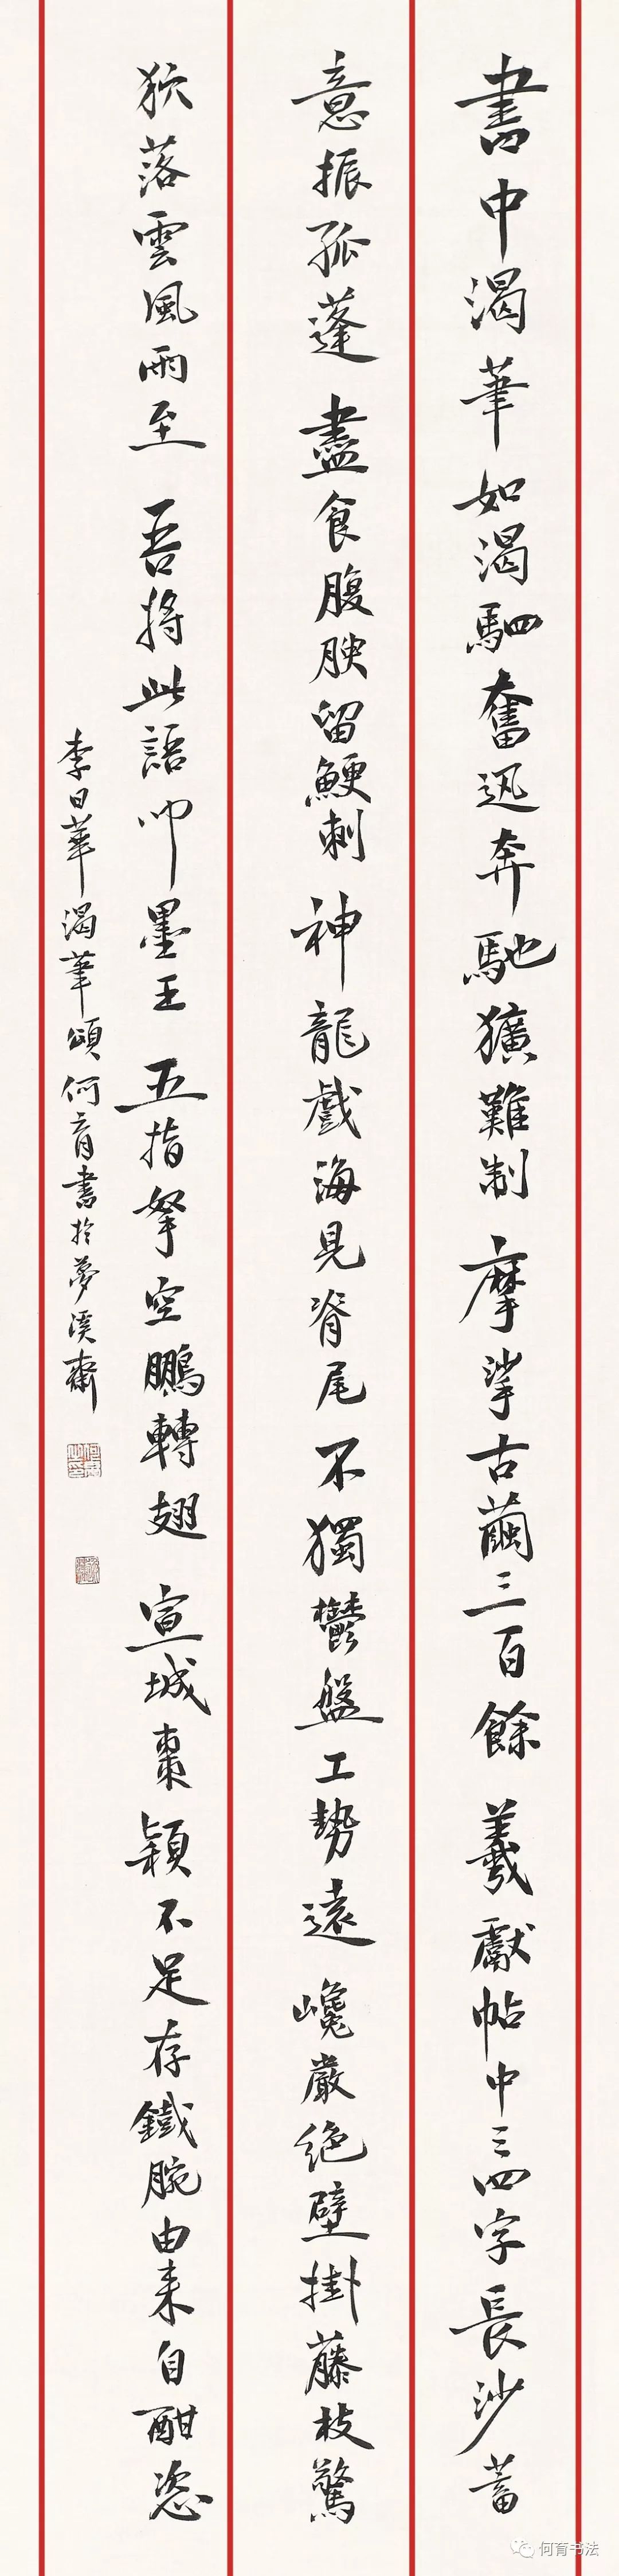 書中渴筆如渴駟奮迅奔馳獷難制摩挲古繭三百餘羲獻帖中三四字長沙蓄
意振孤蓬盡食腹腴留鯁刺神龍戲海見脊尾不獨鬱盤工勢遠巉嚴絕壁掛藤枝驚
狖落雲風雨至吾將此語叩墨王五指拏空鵬轉翅宣城棗穎不足存鐵腕由来自酣恣
李日華渴筆頌何育書於夢溪齋
何育书法